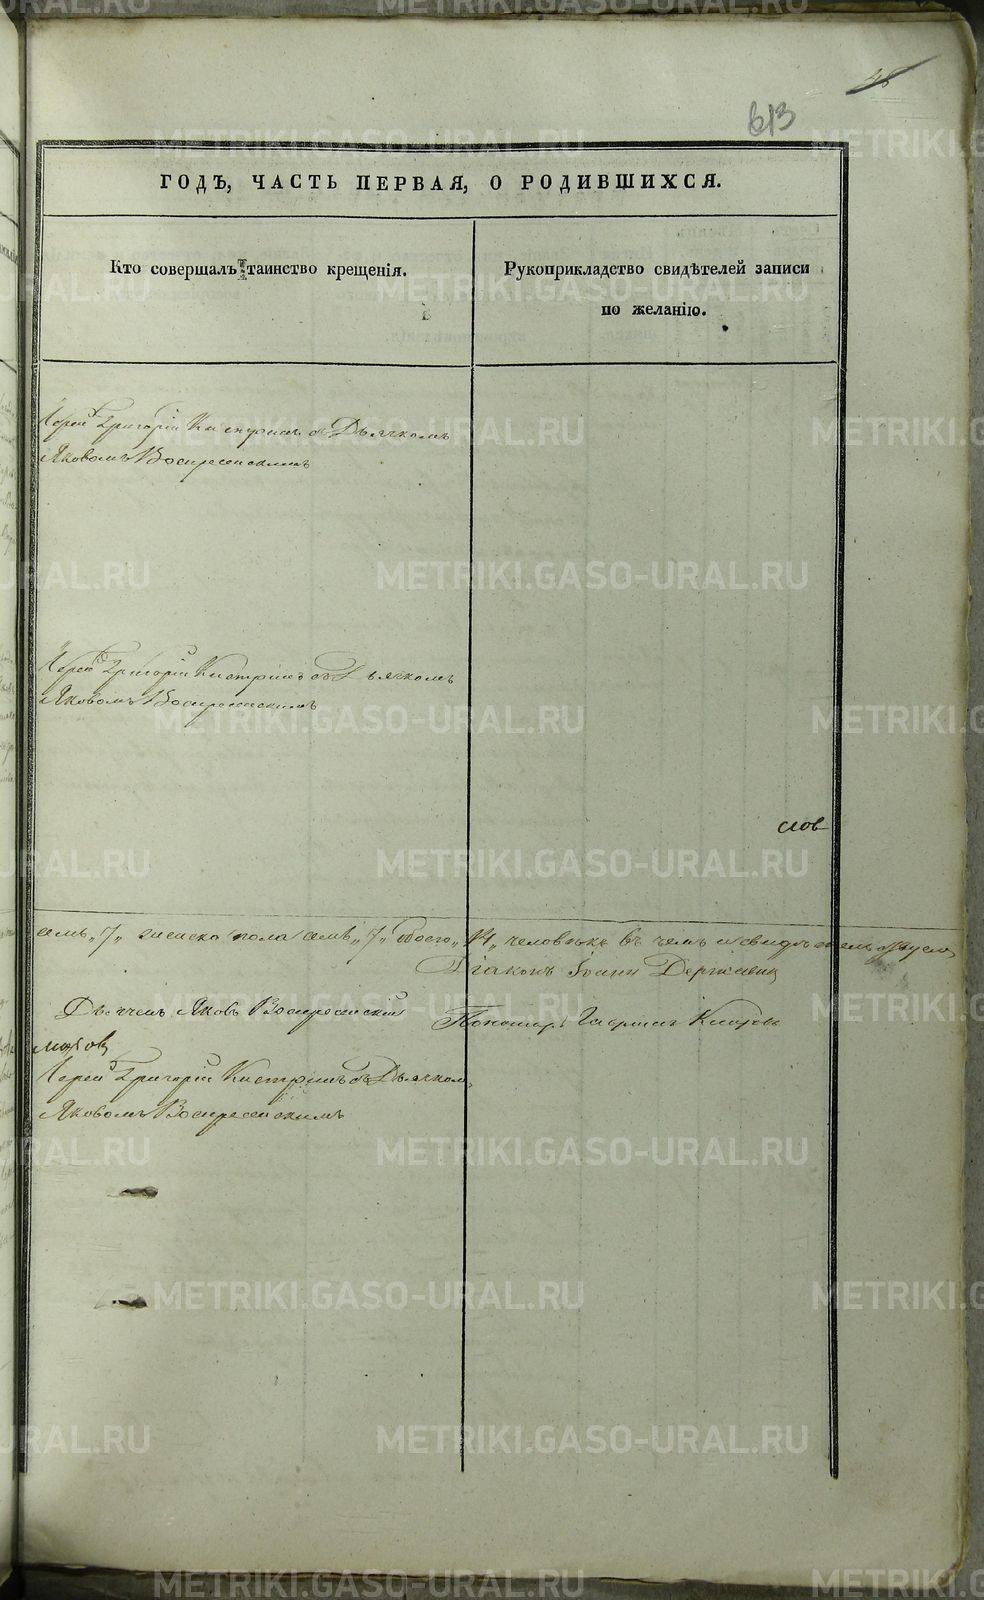 613
ГОДЪ, ЧАСТЬ ПЕРВАЯ, О РОДИВШИХСЯ.
Кто совершалъ таинство крещенія.
Рукоприкладство свидѣтелей записи
по желанію.
Іерей Григорій съ Дьячкомъ
Яковомъ Воскресенскимъ
Іерей Григорій съ Дьячкомъ
Яковомъ Воскресенскимъ
слов
семь „7„ женска пола семь „7„ обоего „14„ человѣкъ въ чемъ и свидѣтельствуемъ
Діаконъ Іоаннъ
Дьячекъ Яковъ Воскресенскій
Пономарь
Іерей Григорій съ Дьячком
Яковомъ Воскресенскимъ
METRIKI.GASO-URAL.RU